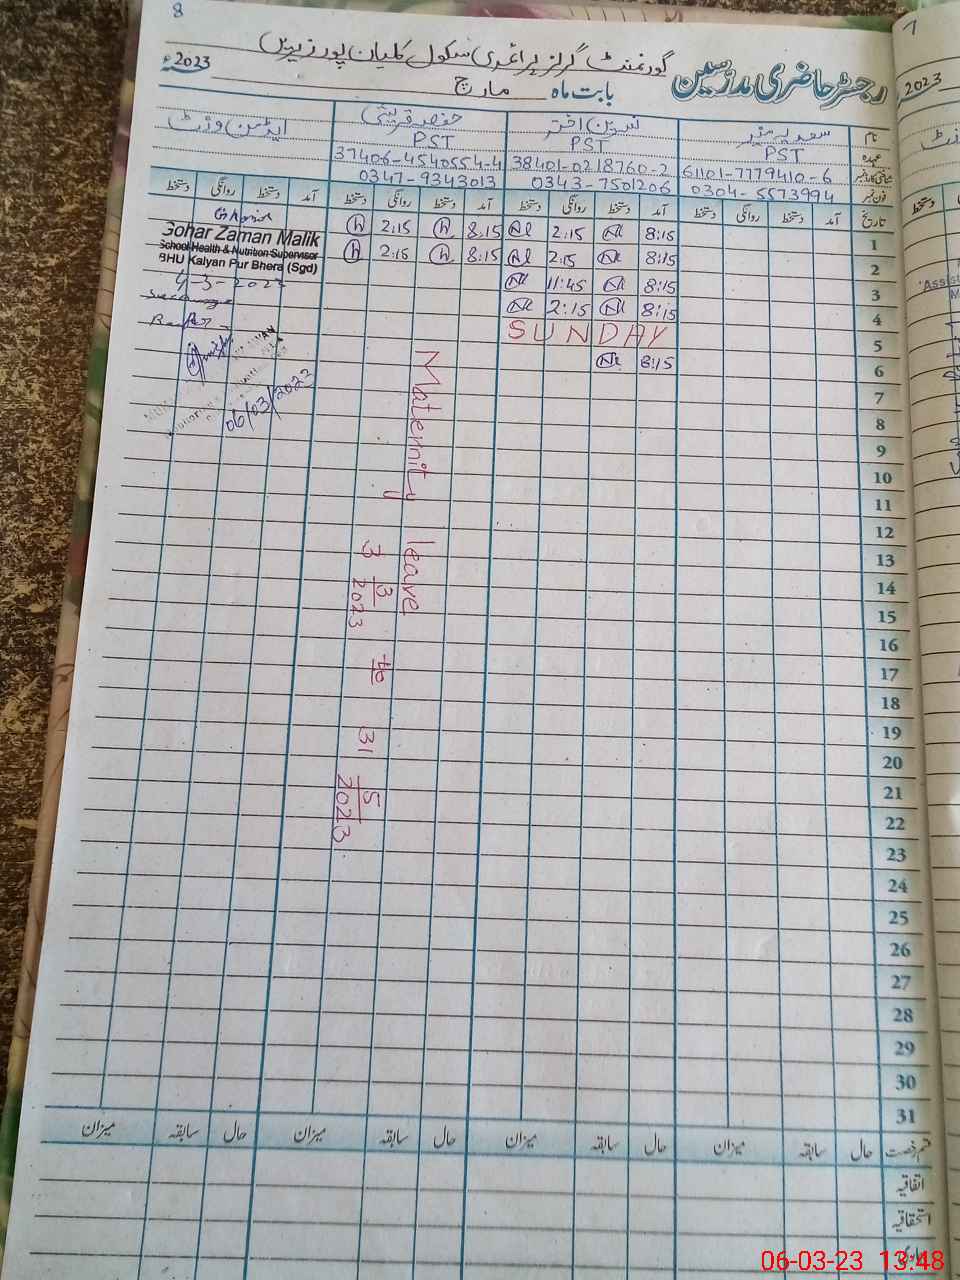 8
گورنمنٹ گرلز پرائمری سکول کلیان پور زیریں
رجسٹر حاضری مدرسین بابت ماہ مارچ 2023ء
نام سعدیہ منیر نسرین اختر حفصہ قریشی ایڈمن وزٹ
عہدہ PST PST PST
شناختی کارڈ نمبر 61101-7779410-6 38401-0218760-2 37406-4540554-4
فون نمبر 0304-5573994 0343-7501206 0347-9343013
تاریخ آمد دستخط روانگی دستخط آمد دستخط روانگی دستخط آمد دستخط روانگی دستخط آمد دستخط روانگی دستخط
1 8:15 2:15 8:15 2:15
2 8:15 2:15 8:15 2:15
3 8:15 11:45
4 8:15 2:15
5 SUNDAY
6 8:15
7
8
9
10
11
12
13
14
15
16
17
18
19
20
21
22
23
24
25
26
27
28
29
30
31
Maternity leave
3 3/2023 to 31 5/2023
Gohar Zaman Malik
School Health & Nutrition Supervisor
BHU Kalyan Pur Bhera (Sgd)
4-3-2023
06/03/2023
قسم رخصت حال سابقہ میزان حال سابقہ میزان حال سابقہ میزان حال سابقہ میزان
اتفاقیہ
استحقاقیہ
7
2023
06-03-23 13:48